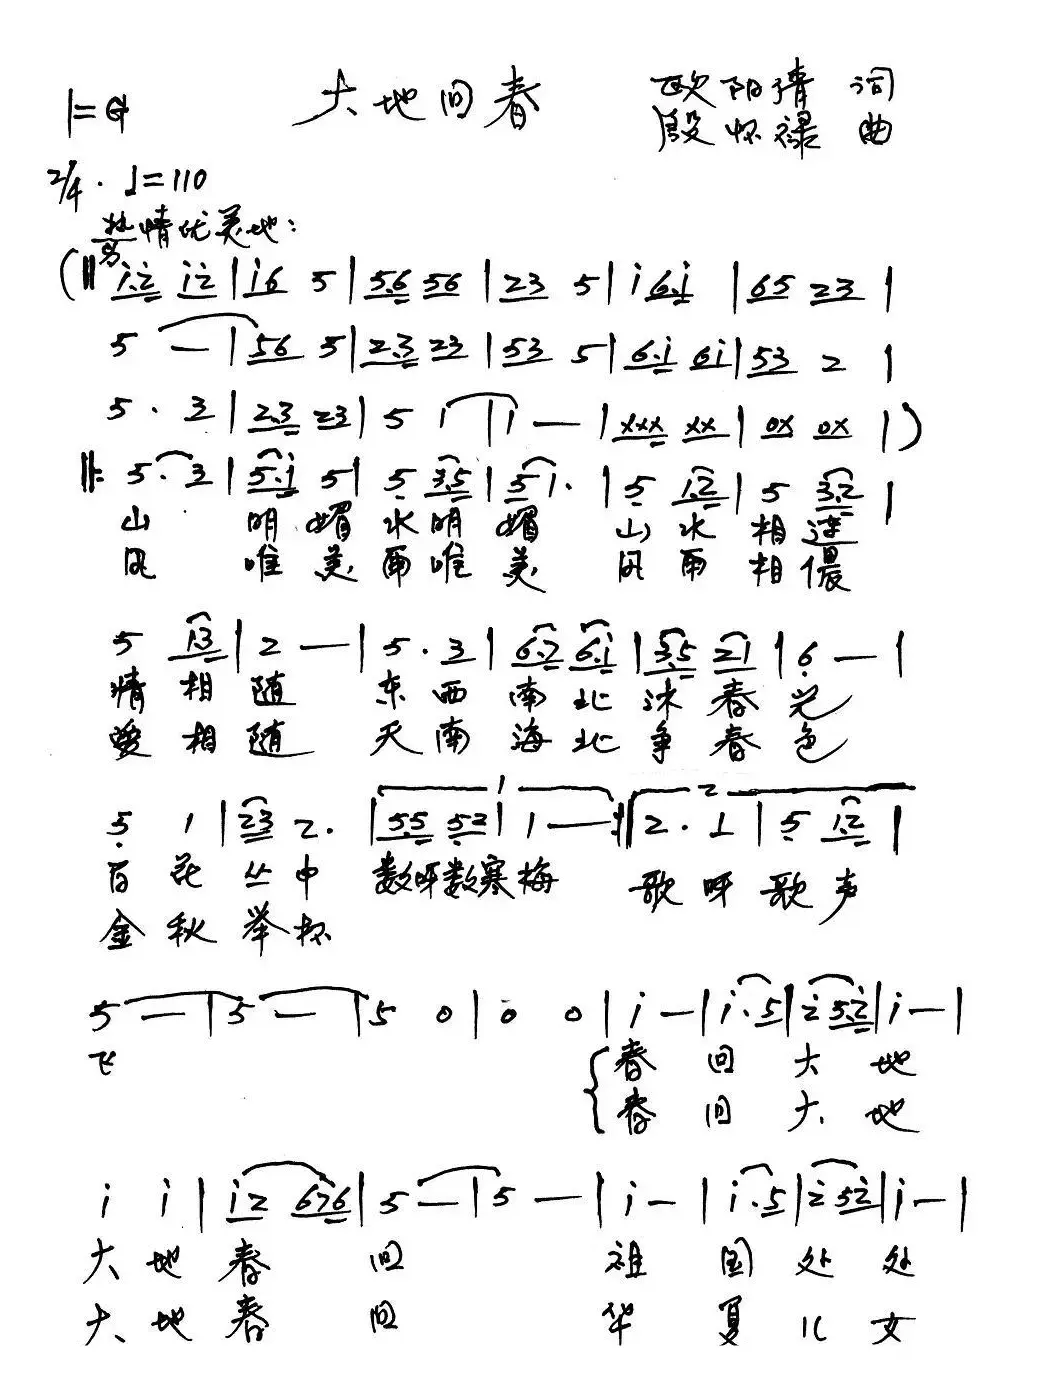 1=G 大地回春 欧阳清 词
殷怀禄 曲
2/4 . ♩=110
热情优美地：
(‖ i.2 i2 | i6 5 | 5.6 56 | 23 5 | i 6.i | 65 23 |
5 — | 56 5 | 2.3 23 | 53 5 | 6.i 6i | 53 2 |
5 . 3 | 2.3 23 | 5 1 | 1 — | xxx xx | 0x 0x | )
‖: 5 . 3 | 5.i 5 | 5 3.5 | 5 1. | 5 1.2 | 5 3.2 |
山 明 媚 水 明 媚 山 水 相 连
风 唯 美 雨 唯 美 风 雨 相 偎
5 13 | 2 — | 5 . 3 | 6.7 6.i | 3.5 21 | 6 — |
情 相 随 东 西 南 北 沐 春 光
爱 相 随 天 南 海 北 争 春 色
1 2
5 1 | 23 2. | 55 52 | 1 — :‖ 2 . 1 | 5 1.2 |
百 花 丛 中 数呀数寒梅 歌 呀 歌 声
金 秋 举 杯
5 — | 5 — | 5 0 | 0 0 | i — | i . 5 | 2 5.2 | i — |
飞 春 回 大 地
春 回 大 地
i i | i2 676 | 5 — | 5 — | i — | i . 5 | 2 52 | i — |
大 地 春 回 祖 国 处 处
大 地 春 回 华 夏 儿 女